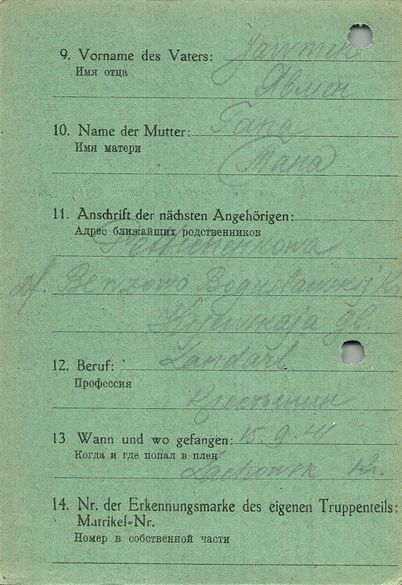 9. Vorname des Vaters: Jawmen
Имя отца
Явмен
10. Name der Mutter: Gana
Имя матери
Гана
11. Anschrift der nächsten Angehörigen:
Адрес ближайших родственников
df. Benzowo Boguslawskij
Kijewskaja gb.
12. Beruf: Landarb
Профессия
Крестьянин
13 Wann und wo gefangen: 15.9.41
Когда и где попал в плен
14. Nr. der Erkennungsmarke des eigenen Truppenteils:
Matrikel-Nr.
Номер в собственной части